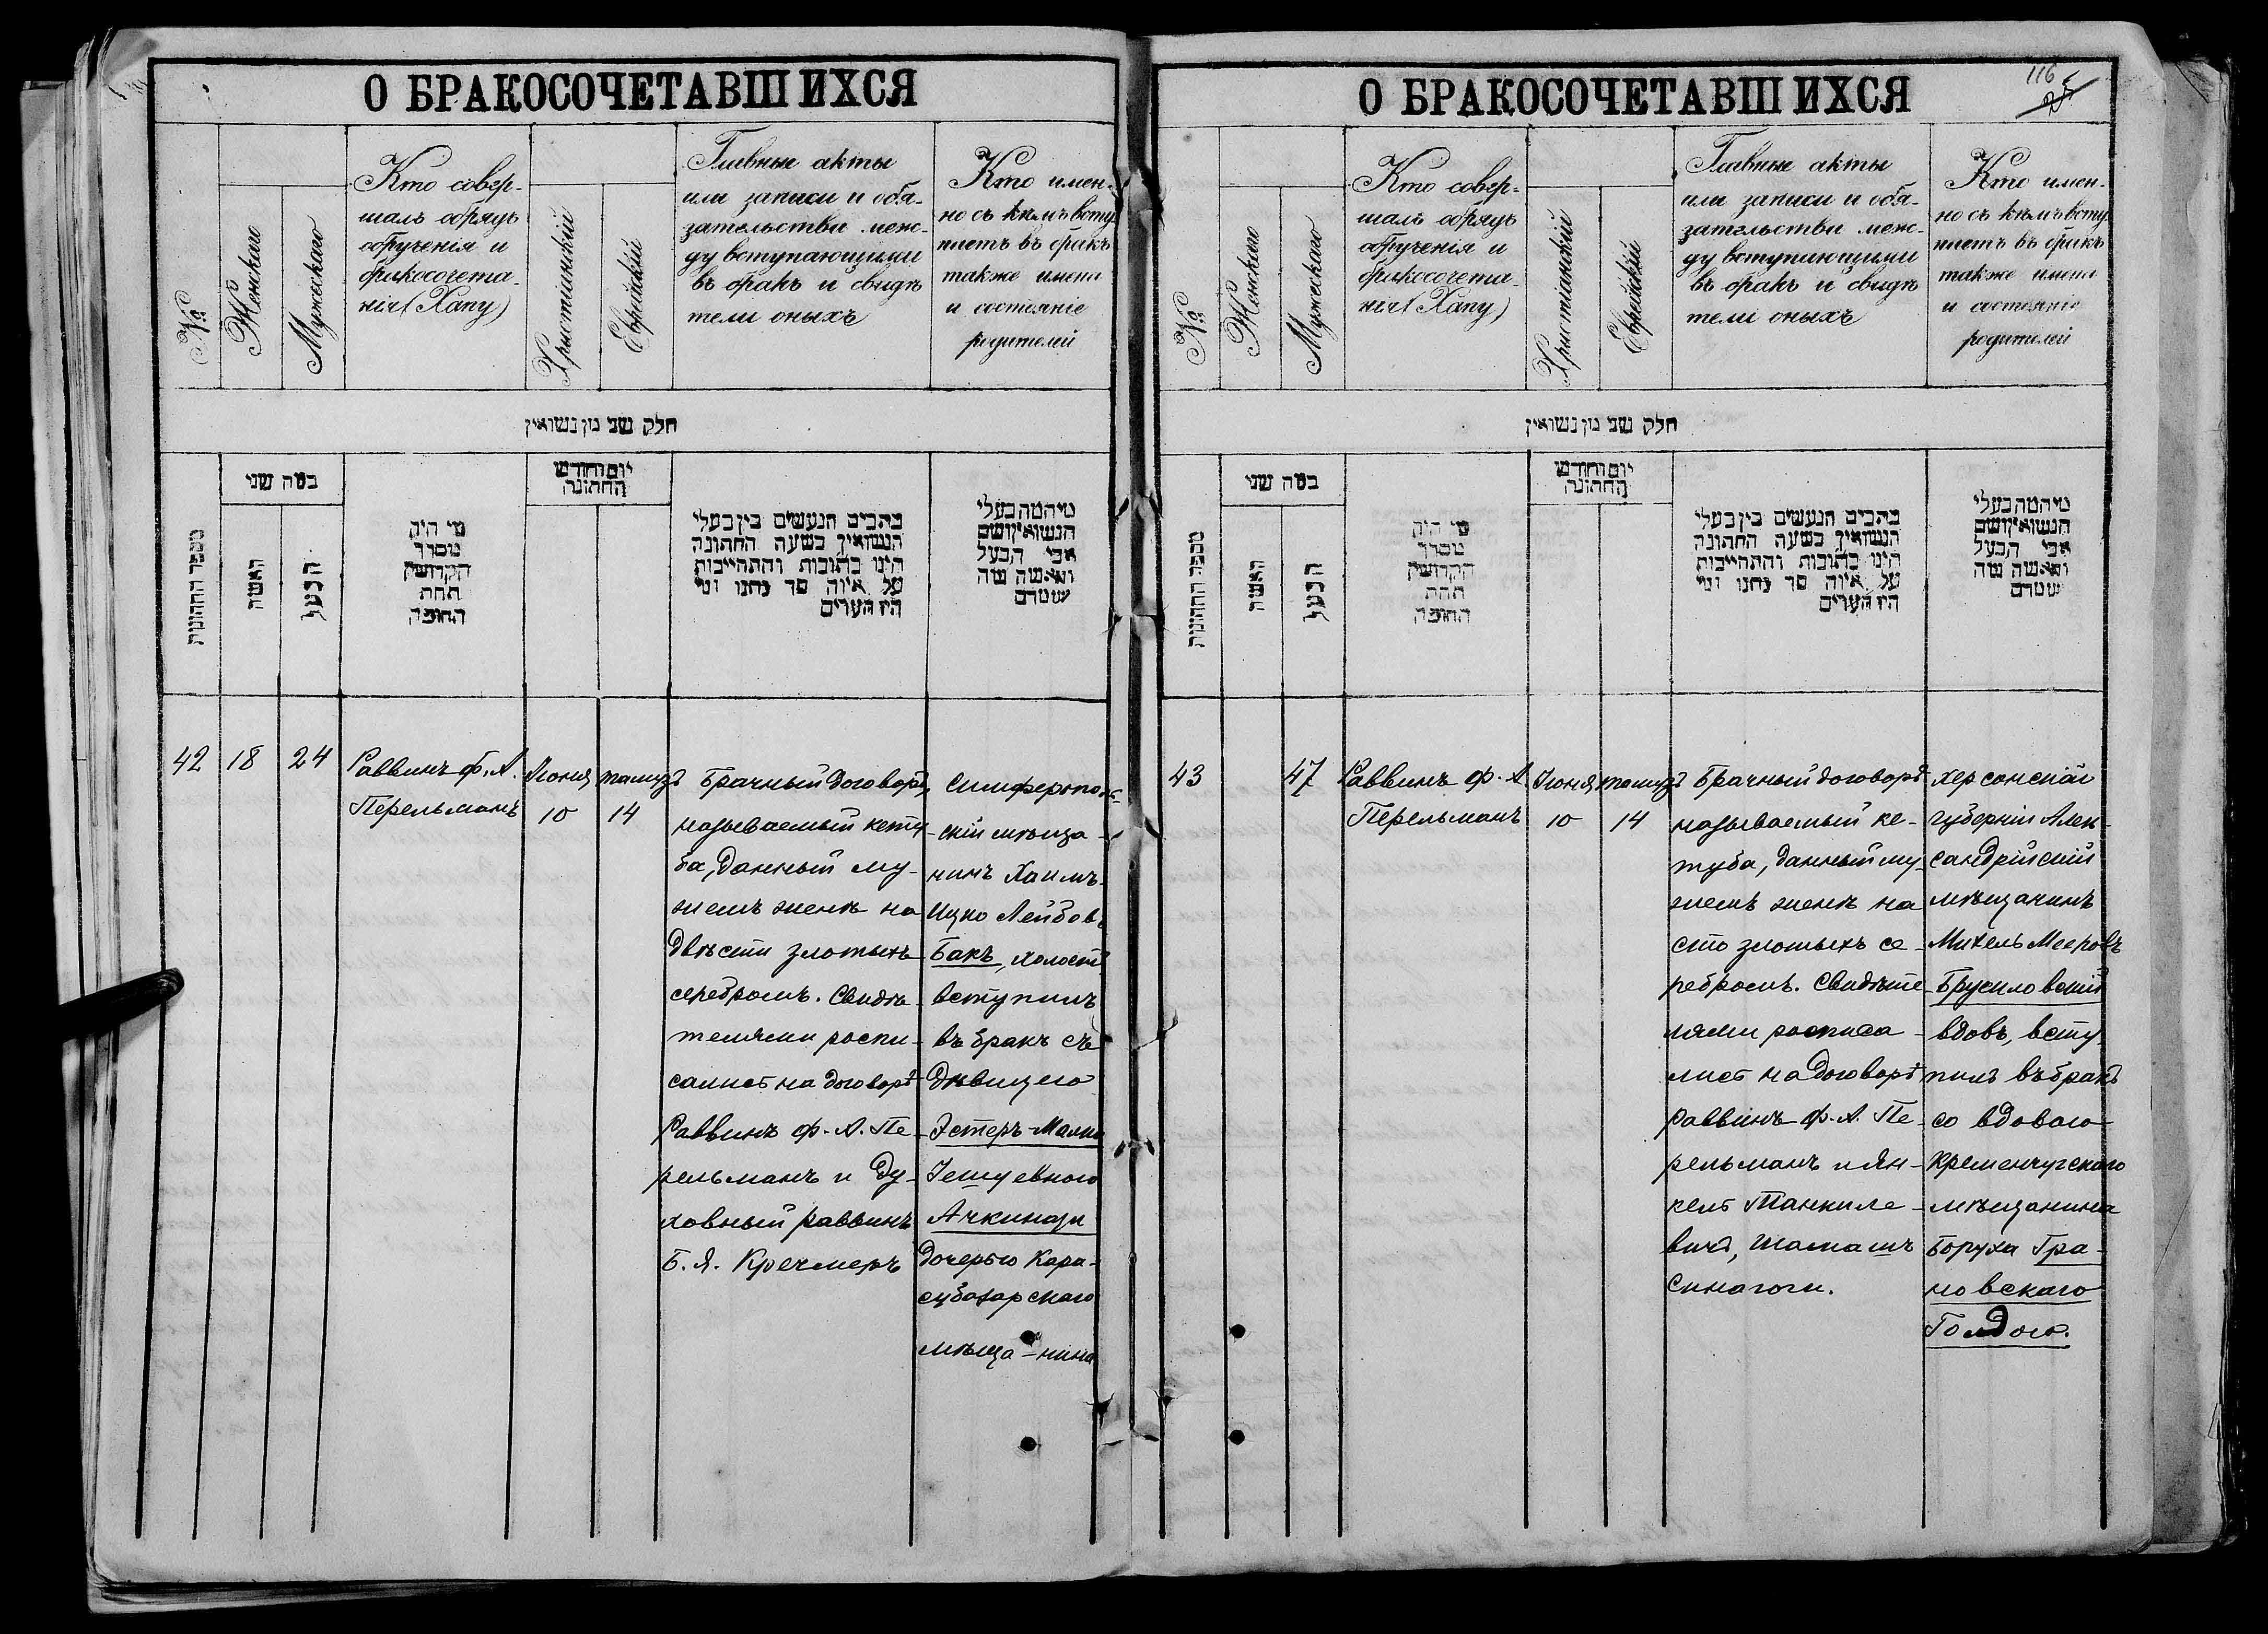 О БРАКОСОЧЕТАВШИХСЯ
№
Женскаго
Мужескаго
Кто совер-
шалъ обрядъ
обрученія и
бракосочета-
нія (Хапу)
Христіанскій
Еврейскій
Главные акты
или записи и обя-
зательства меж-
ду вступающими
въ бракъ и свидѣ
тели оныхъ
Кто имен-
но съ кѣмъ всту
паетъ въ бракъ
также имена
и состояніе
родителей
חלק שני מן נשואין
מספר החתונות
במה שני
האשה
הבעל
מי היה
מסדר
הקדושין
תחת
החופה
יום וחודש
החתונה
כתבים הנעשים בין בעלי
הנשואין בשעה החתונה
היינו כתובות והתחייבות
על איזה סך נתנו ומי
היו העדים
מי המה בעלי
הנשואין ושם
אבי הבעל
והאשה מה
שמדם
42
18
24
Раввинъ Ф. А.
Перельманъ
Іюня
10
тамузъ
14
Брачный договоръ,
называемый кету-
ба, данный му-
жемъ женѣ на
двѣсти злотыхъ
серебромъ. Свидѣ-
телями роспи-
сались на договорѣ
Раввинъ Ф. А. Пе-
рельманъ и Ду-
ховный раввинъ
Б. Я. Кречмеръ
Симферополь-
скій мѣща-
нинъ Хаимъ-
Ицко Лейбовъ
Бакъ, холостъ
вступилъ
въ бракъ съ
дѣвицею
Эстеръ-Малка
Іешуевною
Ачкинази
дочерью Кара-
субазарскаго
мѣща-нина
О БРАКОСОЧЕТАВШИХСЯ
116
25
№
Женскаго
Мужескаго
Кто совер-
шалъ обрядъ
обрученія и
бракосочета-
нія (Хапу)
Христіанскій
Еврейскій
Главные акты
или записи и обя-
зательства меж-
ду вступающими
въ бракъ и свидѣ
тели оныхъ
Кто имен-
но съ кѣмъ всту
паетъ въ бракъ
также имена
и состояніе
родителей
חלק שני מן נשואין
מספר החתונות
במה שני
האשה
הבעל
מי היה
מסדר
הקדושין
תחת
החופה
יום וחודש
החתונה
כתבים הנעשים בין בעלי
הנשואין בשעה החתונה
היינו כתובות והתחייבות
על איזה סך נתנו ומי
היו העדים
מי המה בעלי
הנשואין ושם
אבי הבעל
והאשה מה
שמדם
43
47
Раввинъ Ф. А.
Перельманъ
Іюня
10
тамузъ
14
Брачный договоръ
называемый ке-
туба, данный му-
жемъ женѣ на
сто злотыхъ се-
ребромъ. Свидѣте-
лями росписа-
лись на договорѣ
раввинъ Ф. А. Пе-
рельманъ и Ян-
кель Танкиле-
вичъ, шамашъ
синагоги.
Херсонской
губерніи Алек-
сандрійскій
мѣщанинъ
Михель Мееровъ
Брусиловскій
вдовъ, всту
пилъ въ бракъ
со вдовою
Кременчугскаго
мѣщанина
Боруха Гра-
новскаго
Голдою.